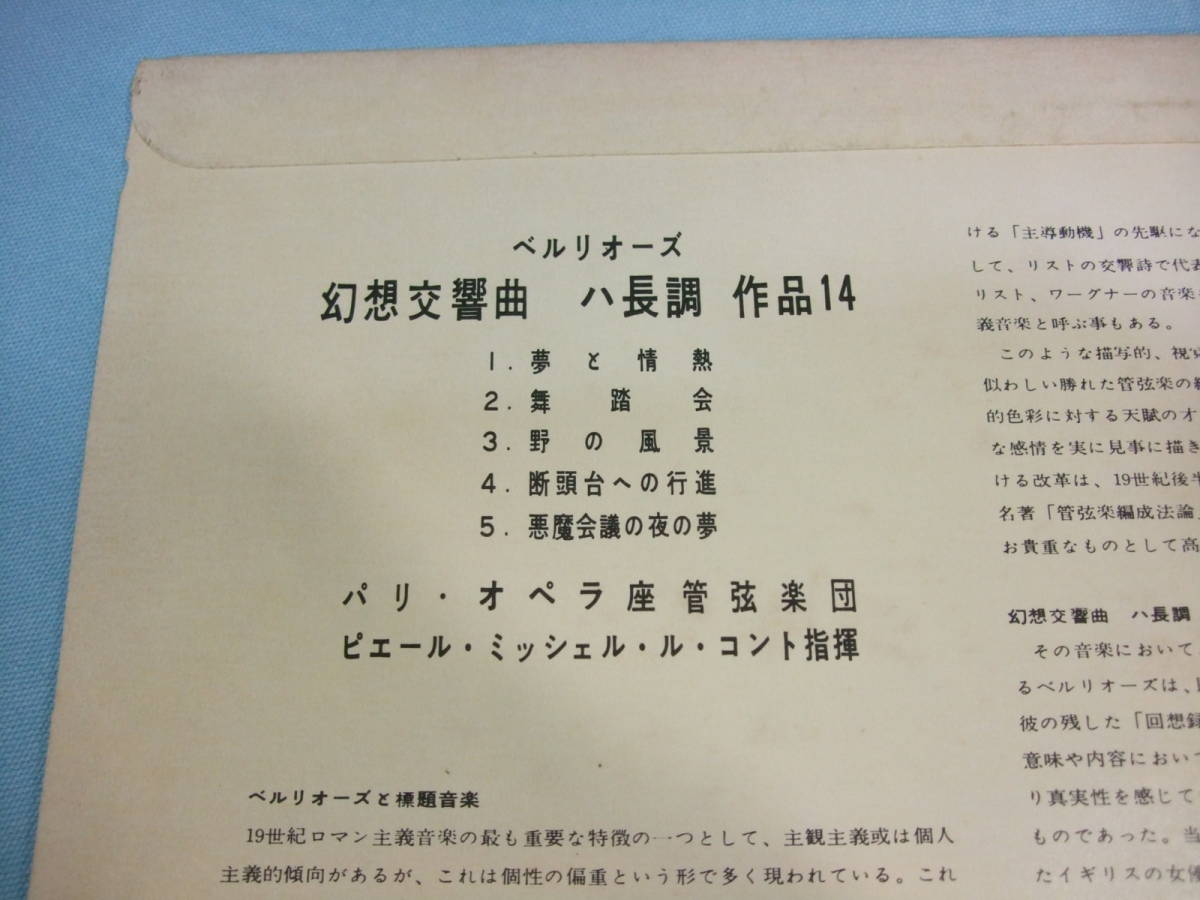 ベルリオーズ
幻想交響曲 ハ長調 作品14
1. 夢と情熱
2. 舞踏会
3. 野の風景
4. 断頭台への行進
5. 悪魔会議の夜の夢
パリ・オペラ座管弦楽団
ピエール・ミッシェル・ル・コント指揮
ベルリオーズと標題音楽
19世紀ロマン主義音楽の最も重要な特徴の一つとして、主観主義或は個人
主義的傾向があるが、これは個性の偏重という形で多く現われている。これ
ける「主導動機」の先駆にな
して、リストの交響詩で代表
リスト、ワーグナーの音楽
義音楽と呼ぶ事もある。
このような描写的、視覚
似わしい勝れた管弦楽の
的色彩に対する天賦のオ
な感情を実に見事に描き
ける改革は、19世紀後半
名著「管弦楽編成法論
お貴重なものとして高
幻想交響曲 ハ長調
その音楽において
るベルリオーズは、
彼の残した「回想録
意味や内容において
り真実性を感じて
ものであった。当
たイギリスの女優